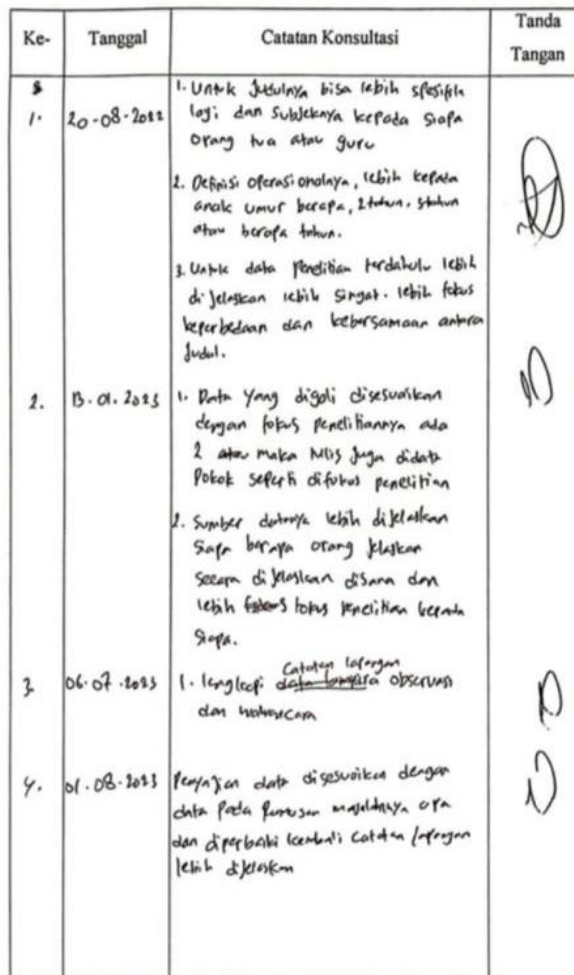 Ke- Tanggal Catatan Konsultasi Tanda Tangan
1. 20-08-2022 1. Untuk Judulnya bisa lebih spesifik
lagi dan Subjeknya kepada Siapa
orang tua atau guru
2. Definisi operasionalnya, lebih kepada
anak umur berapa, 2 tahun, 3 tahun
atau berapa tahun.
3. Untuk data Penelitian terdahulu lebih
di Jelaskan lebih Singat. lebih fokus
keperbedaan dan kebersamaan antara
Judul.
2. 13.01.2023 1. Data Yang digali disesuaikan
dengan fokus penelitiannya ada
2 atau maka tulis Juga didata
Pokok seperti difokus penelitian
2. Sumber datanya lebih diJelaskan
Siapa berapa orang Jelaskan
secara diJelaskan disana dan
lebih fokus penelitian kepada
Siapa.
3. 06.07.2023 1. lengkapi Catatan lapangan observasi
dan wawancara
4. 01.08.2023 Penyajian data disesuaikan dengan
data Pada Rumusan apa
dan diperbaiki kembali Catatan lapangan
lebih diJelaskan